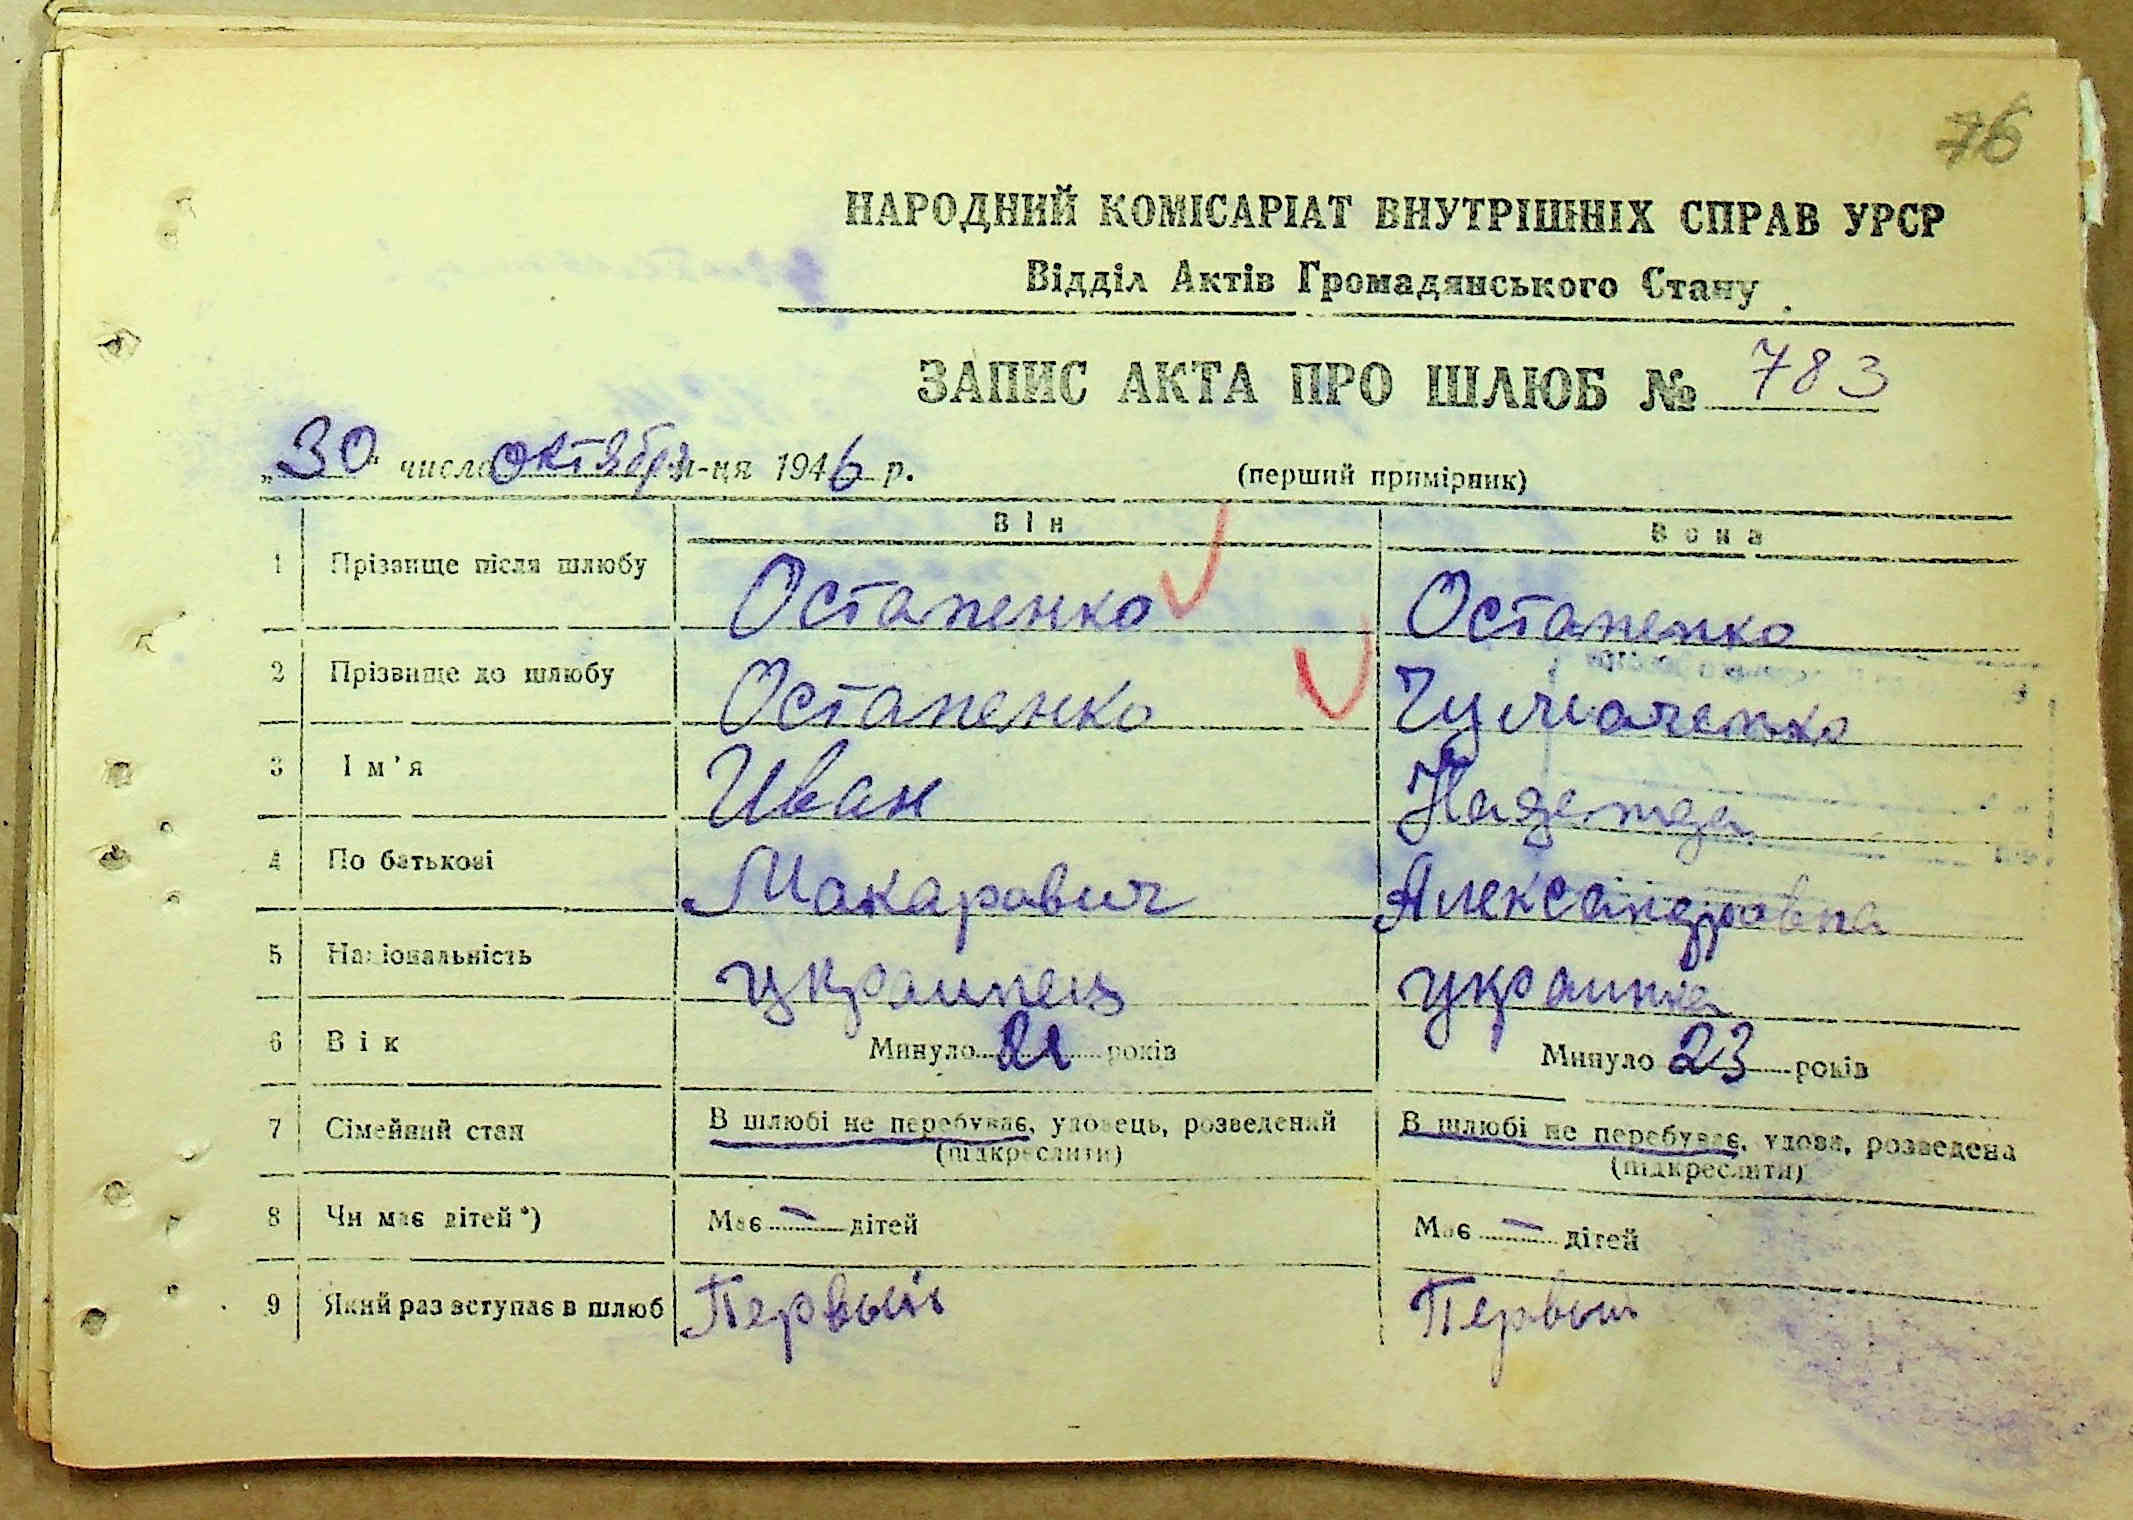 76
НАРОДНИЙ КОМІСАРІАТ ВНУТРІШНІХ СПРАВ УРСР
Відділ Актів Громадянського Стану
ЗАПИС АКТА ПРО ШЛЮБ № 783
„30" число октября м-ця 1946 р.
(перший примірник)
Він Вона
1 Прізвище після шлюбу Остапенко Остапенко
2 Прізвище до шлюбу Остапенко
3 Ім'я Иван Надежда
4 По батькові Макарович Александровна
5 Національність украинец украинка
6 Вік Минуло 21 років Минуло 23 років
7 Сімейний стан В шлюбі не перебуває, удовець, розведений В шлюбі не перебуває, удова, розведена
(підкреслити) (підкреслити)
8 Чи має дітей*) Має — дітей Має — дітей
9 Який раз вступає в шлюб Первый Первый